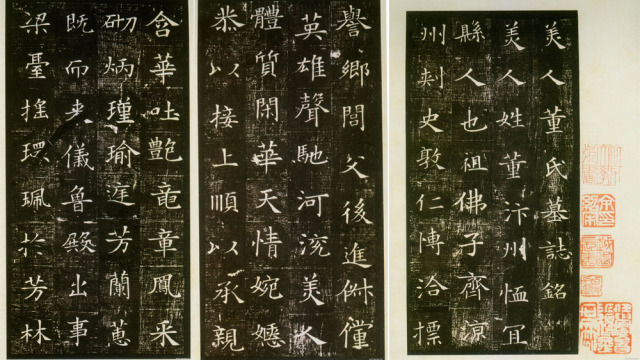 美人董氏墓誌銘
美人姓董汴州恤冝
縣人也祖佛子齊涼
州刾史敦仁博洽摽
譽鄉閭父後進俶儻
英雄聲馳河兗美人
體質閑華天情婉嫕
恭以接上順以承親
含華吐艷龍章鳳采
砌炳瑾瑜庭芳蘭蕙
既而来儀魯殿出事
梁臺搖環珮於芳林